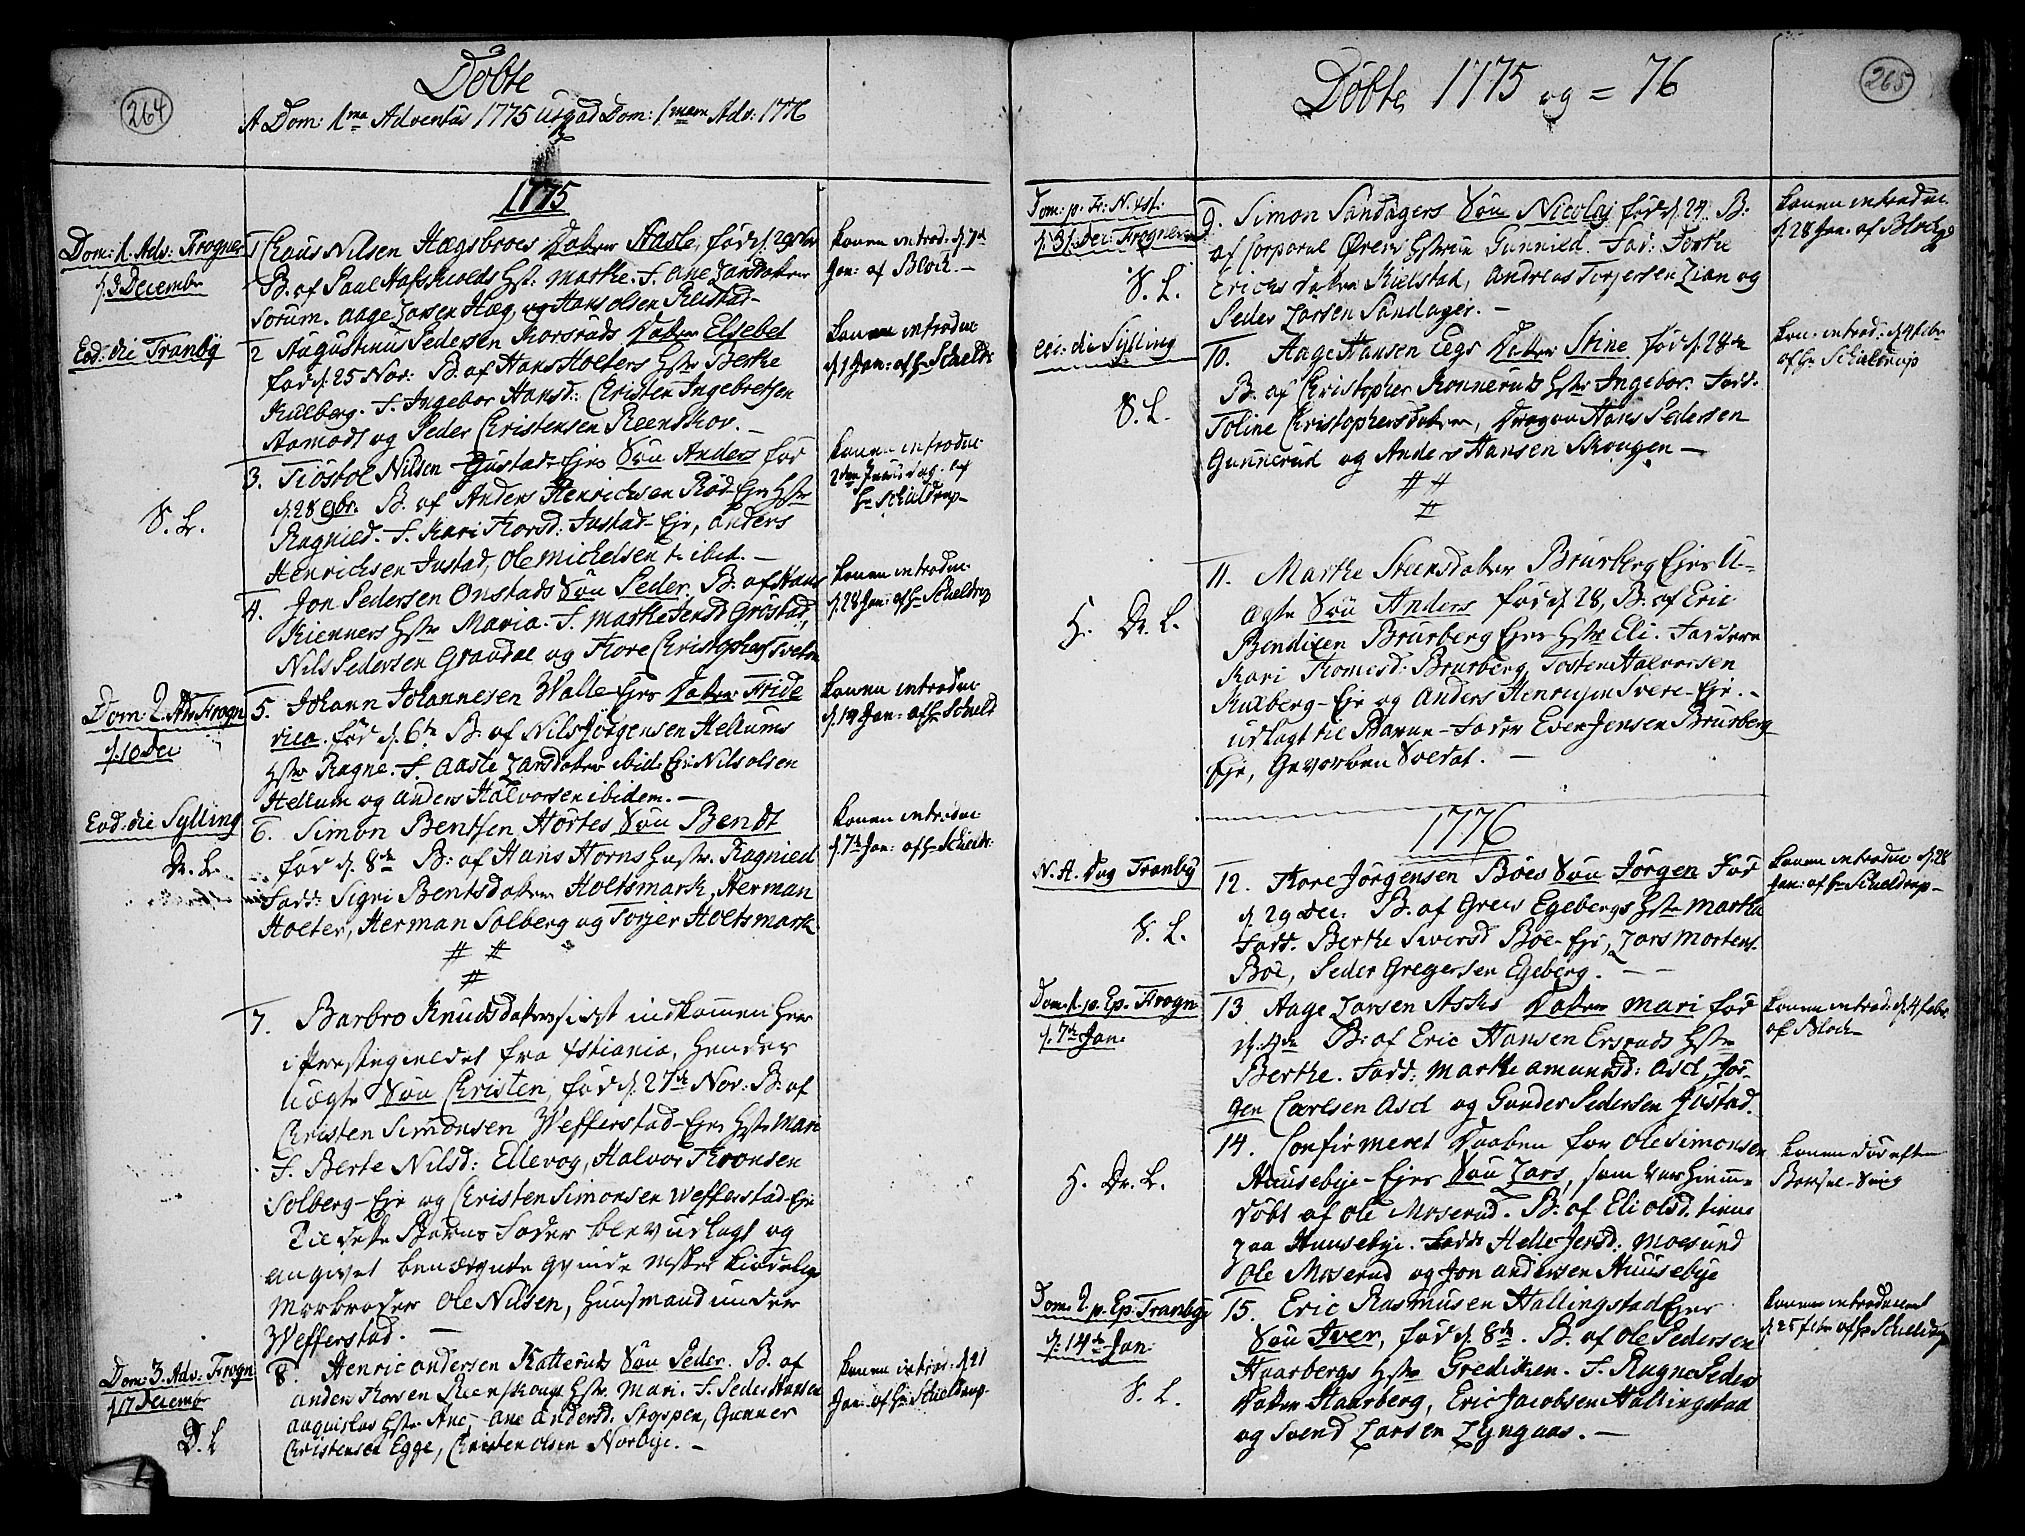 264
Döbte
A Dom: 1ma Adventus 1775 usq ad Dom: 1mam Adv: 1776
1775
Dom: 1. Adv: Frogner
d. 3 Decembr
1 Claus Nilsen Hægsbroes Datter Aaste, föd d. 29 9br
B. af Paul Hafskiolds Hstr: Marthe. F. Ane Larsdatter
Sørum. Aage Larsen Hæg, og Hans Olsen Reistad.
Konen introd. d. 7d
Jan: af Bloch. —
Eod: die Tranby
2 Augustinus Pedersen Korsruds Datter Elsebet
föd d. 25 Nov: B. af Hans Holters Hstr Berthe
Kulberg. F. Ingebor Hansd: Christen Ingebretsen
Aamodt og Peder Christensen Reenskov. —
Konen introduc:
d. 1 Jan: af Hr Scheldr:
S. L.
3. Tiostol Nilsen Gustad-Ejes Søn Anders föd
d. 28 9br. B. af Anders Henrichsen Röd-Ejes Hstr
Ragnied. F. Kari Thorsd: Justad-Eje, Anders
Henrichsen Justad, Ole Michelsen ibid. —
Konen introduc:
2den Juledag af
Hr Scheldrup —
4. Jon Pedersen Onstads Søn Peder. B. af Hans
Kienners Hstr Maria. F. Marthe Jensd Gröstad,
Nils Pedersen Gravdal og Thore Christophers Tveten
Konen introduc:
d. 28 Jan: af Hr Scheldrup
Dom: 2. Adv: Frogn
d. 10 Dec
5. Johann Johannesen Walle-Ejes Datter Fride
rica. föd d. 6te B. af Nils Jörgensen Hellums
Hstr Ragne. F. Aaste Larsdatter ibid: Eje Nils Olsen
Hellum og Anders Halvorsen ibidem. —
Konen introduc:
d. 14 Jan: af Hr Scheld
Eod: die Sylling
Dr. L.
6. Simon Bentsen Hörtes Søn Bendt
föd d. 8de B: af Hans Horns Hustr. Ragnied
Fadd: Sigri Bentsdatter Holtsmark, Herman
Holter, Herman Solberg og Torger Holtsmark
Konen introduc
d. 7de Jan: af Hr Scheldr:
# #
#
7. Barbro Knudsdatter sidst indkommen her
i Præstegieldet fra Xstiania, hendes
uægte Søn Christen, föd d. 27de Nov: B. af
Christen Simonsen Wefferstad-Ejes Hstr Mari
F. Berte Nilsd: Ellevog, Halvor Thronsen
Solberg-Eje og Christen Simonsen Wefferstad-Eje
Til dette Barns Fader blev udlagt og
angivet benævnte Qvindemskes kiödelige
Morbroder Ole Nilsen, Huusmand under
Wefferstad. —
Dom: 3. Adv: Frogn
d. 17 Decembr
D. L
8. Henric Andersen Katteruds Søn Peder. B. af
Anders Thorsen Reenskougs Hstr. Mari. F. Peder Hansen
Hstr Ane, Ane Andersd: Gunner
Christensen Egge, Christen Olsen Norbye. —
Konen introd: d. 21
Jan: af Hr Scheldrup.
Döbte 1775 og = 76
265
Dom: p. Fr: N. Xst:
d. 31 Dec: Frogner
S. L.
9. Simon Sandagers Søn Nicolaj föd d. 24. B:
af Corporal Örens Hstrue Gunnied. Fad: Dorthe
Erichsdatter Kielstad, Andreas Torjersen Lian og
Peder Larsen Sandager. —
Konen introduc:
d. 28 Jan: af Bloch
eod: die Sylling
S. L.
10. Aage Hansen Eegs Datter Stine föd d. 28de
B. af Christopher Konneruds Hstr Ingebor. Fadd.
Toline Christophersdatter, Dragon Hans Pedersen
Gunnerud og Anders Hansen Skougen —
Kon: introd: d. 4 Febr
af Hr Scheldrup
# #
#
H. Dr. L.
11. Marthe Steensdatter Brurberg Ejes U-
ægte Søn Anders föd d. 28, B. af Eric
Bendixen Brurberg Ejes Hstr Eli. Faddere
Kari Thomesd: Brurberg, Tosten Halvorsen
Kulberg-Eje og Anders Henricsen Svere-Eje. —
udlagt til Barne-Fader Even Jensen Brurberg
Eje, Gevorben Soldat. —
1776
N. A. Dag Tranby
S. L.
12. Thore Jörgensen Böes Søn Jörgen Föd
d. 29 Dec: B. af Grers Egebergs Hstr Marthe
Fadd. Berthe Siversd Böe-Eje, Lars Mortens.
Böe, Peder Gregersen Egeberg. — —
Konen introduc d. 28
Jan: af Hr Scheldrup —
Dom: 1. p. Ep. Frogn
d. 7de Jan:
13 Aage Larsen Asks Datter Mari föd
d. 4de B: af Eric Hansen Ersruds Hstr
Berthe. Fadd: Marthe Amundsd: Asd, Jör-
gen Carlsen Asd og Gunder Pedersen Justad.
Konen introd: d. 4 Febr.
af Bloch
H. Dr. L.
14. Confirmeret Daaben for Ole Simonsen
Huusebye-Ejes Søn Lars, som var hjemme-
döbt af Ole Moserud. B. af Eli Olsd. tiene
paa Huusebye. Fadd: Helle Jensd: Moesund
Ole Moserud og Jon Andersen Huusebye
Konen död efter
Barsel-Seng
Dom: 2. p. Ep: Tranbye
d. 14de Jan:
S. L.
15. Eric Rasmusen Hallingstad Ejes
Søn Iver, föd d. 8de. B. af Ole Pedersen
Haarbergs Hstr Grediken. F. Ragne Peders
Datter Haarberg, Eric Jacobsen Hallingstad
og Svend Larsen Lyngaas. —
Konen introduceret
d. 25 Febr af Hr Scheldrup